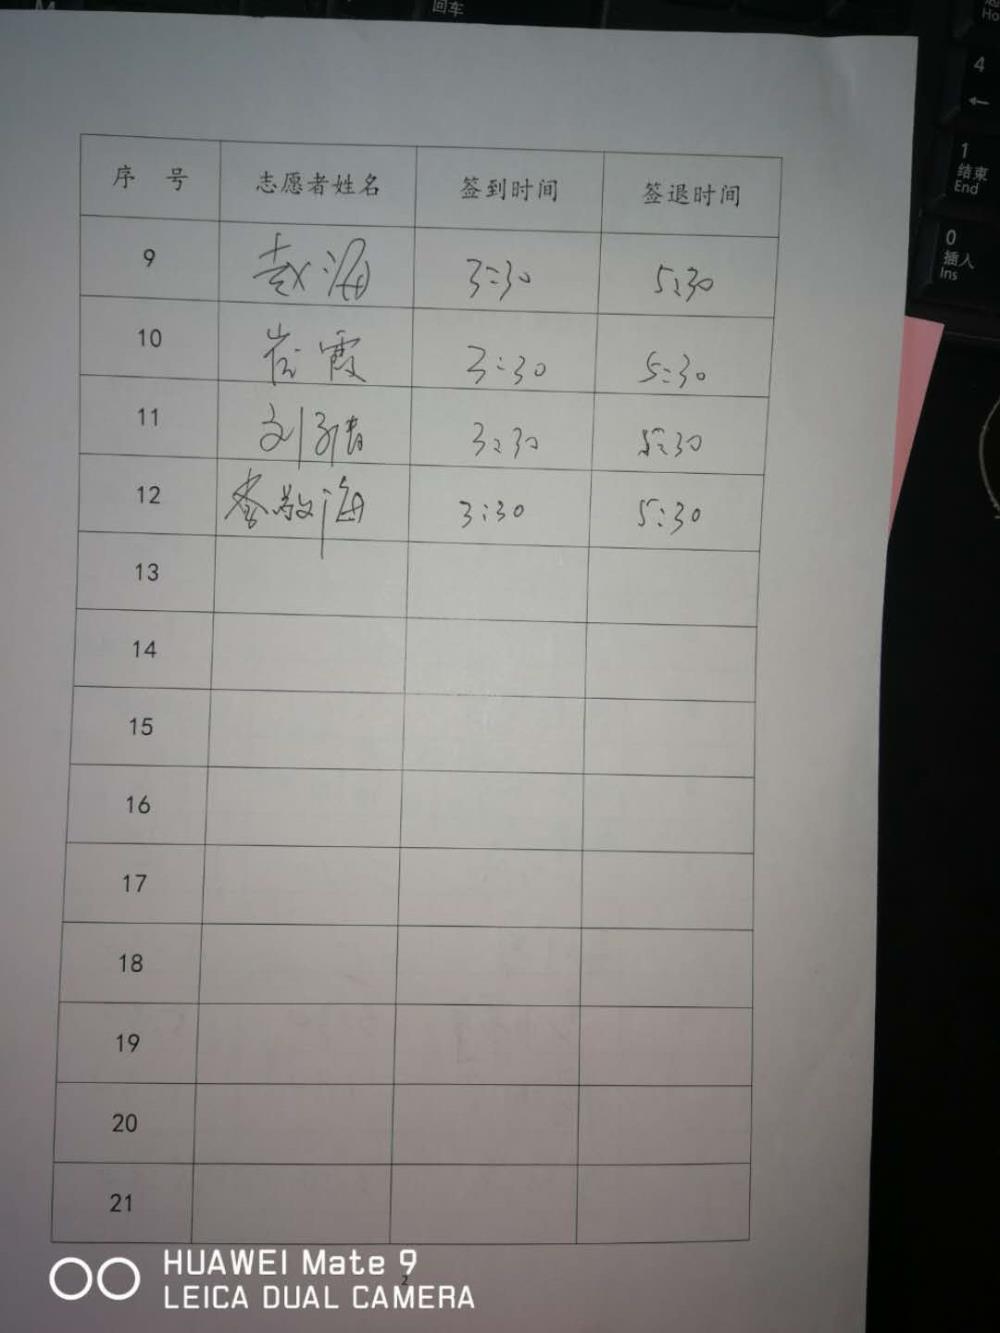 回车
4
←
1
结束
End
0
插入
Ins
序 号 志愿者姓名 签到时间 签退时间
9 赵海 3:30 5:30
10 崔霞 3:30 5:30
11 刘 3:30 5:30
12 海 3:30 5:30
13
14
15
16
17
18
19
20
21
2
HUAWEI Mate 9
LEICA DUAL CAMERA